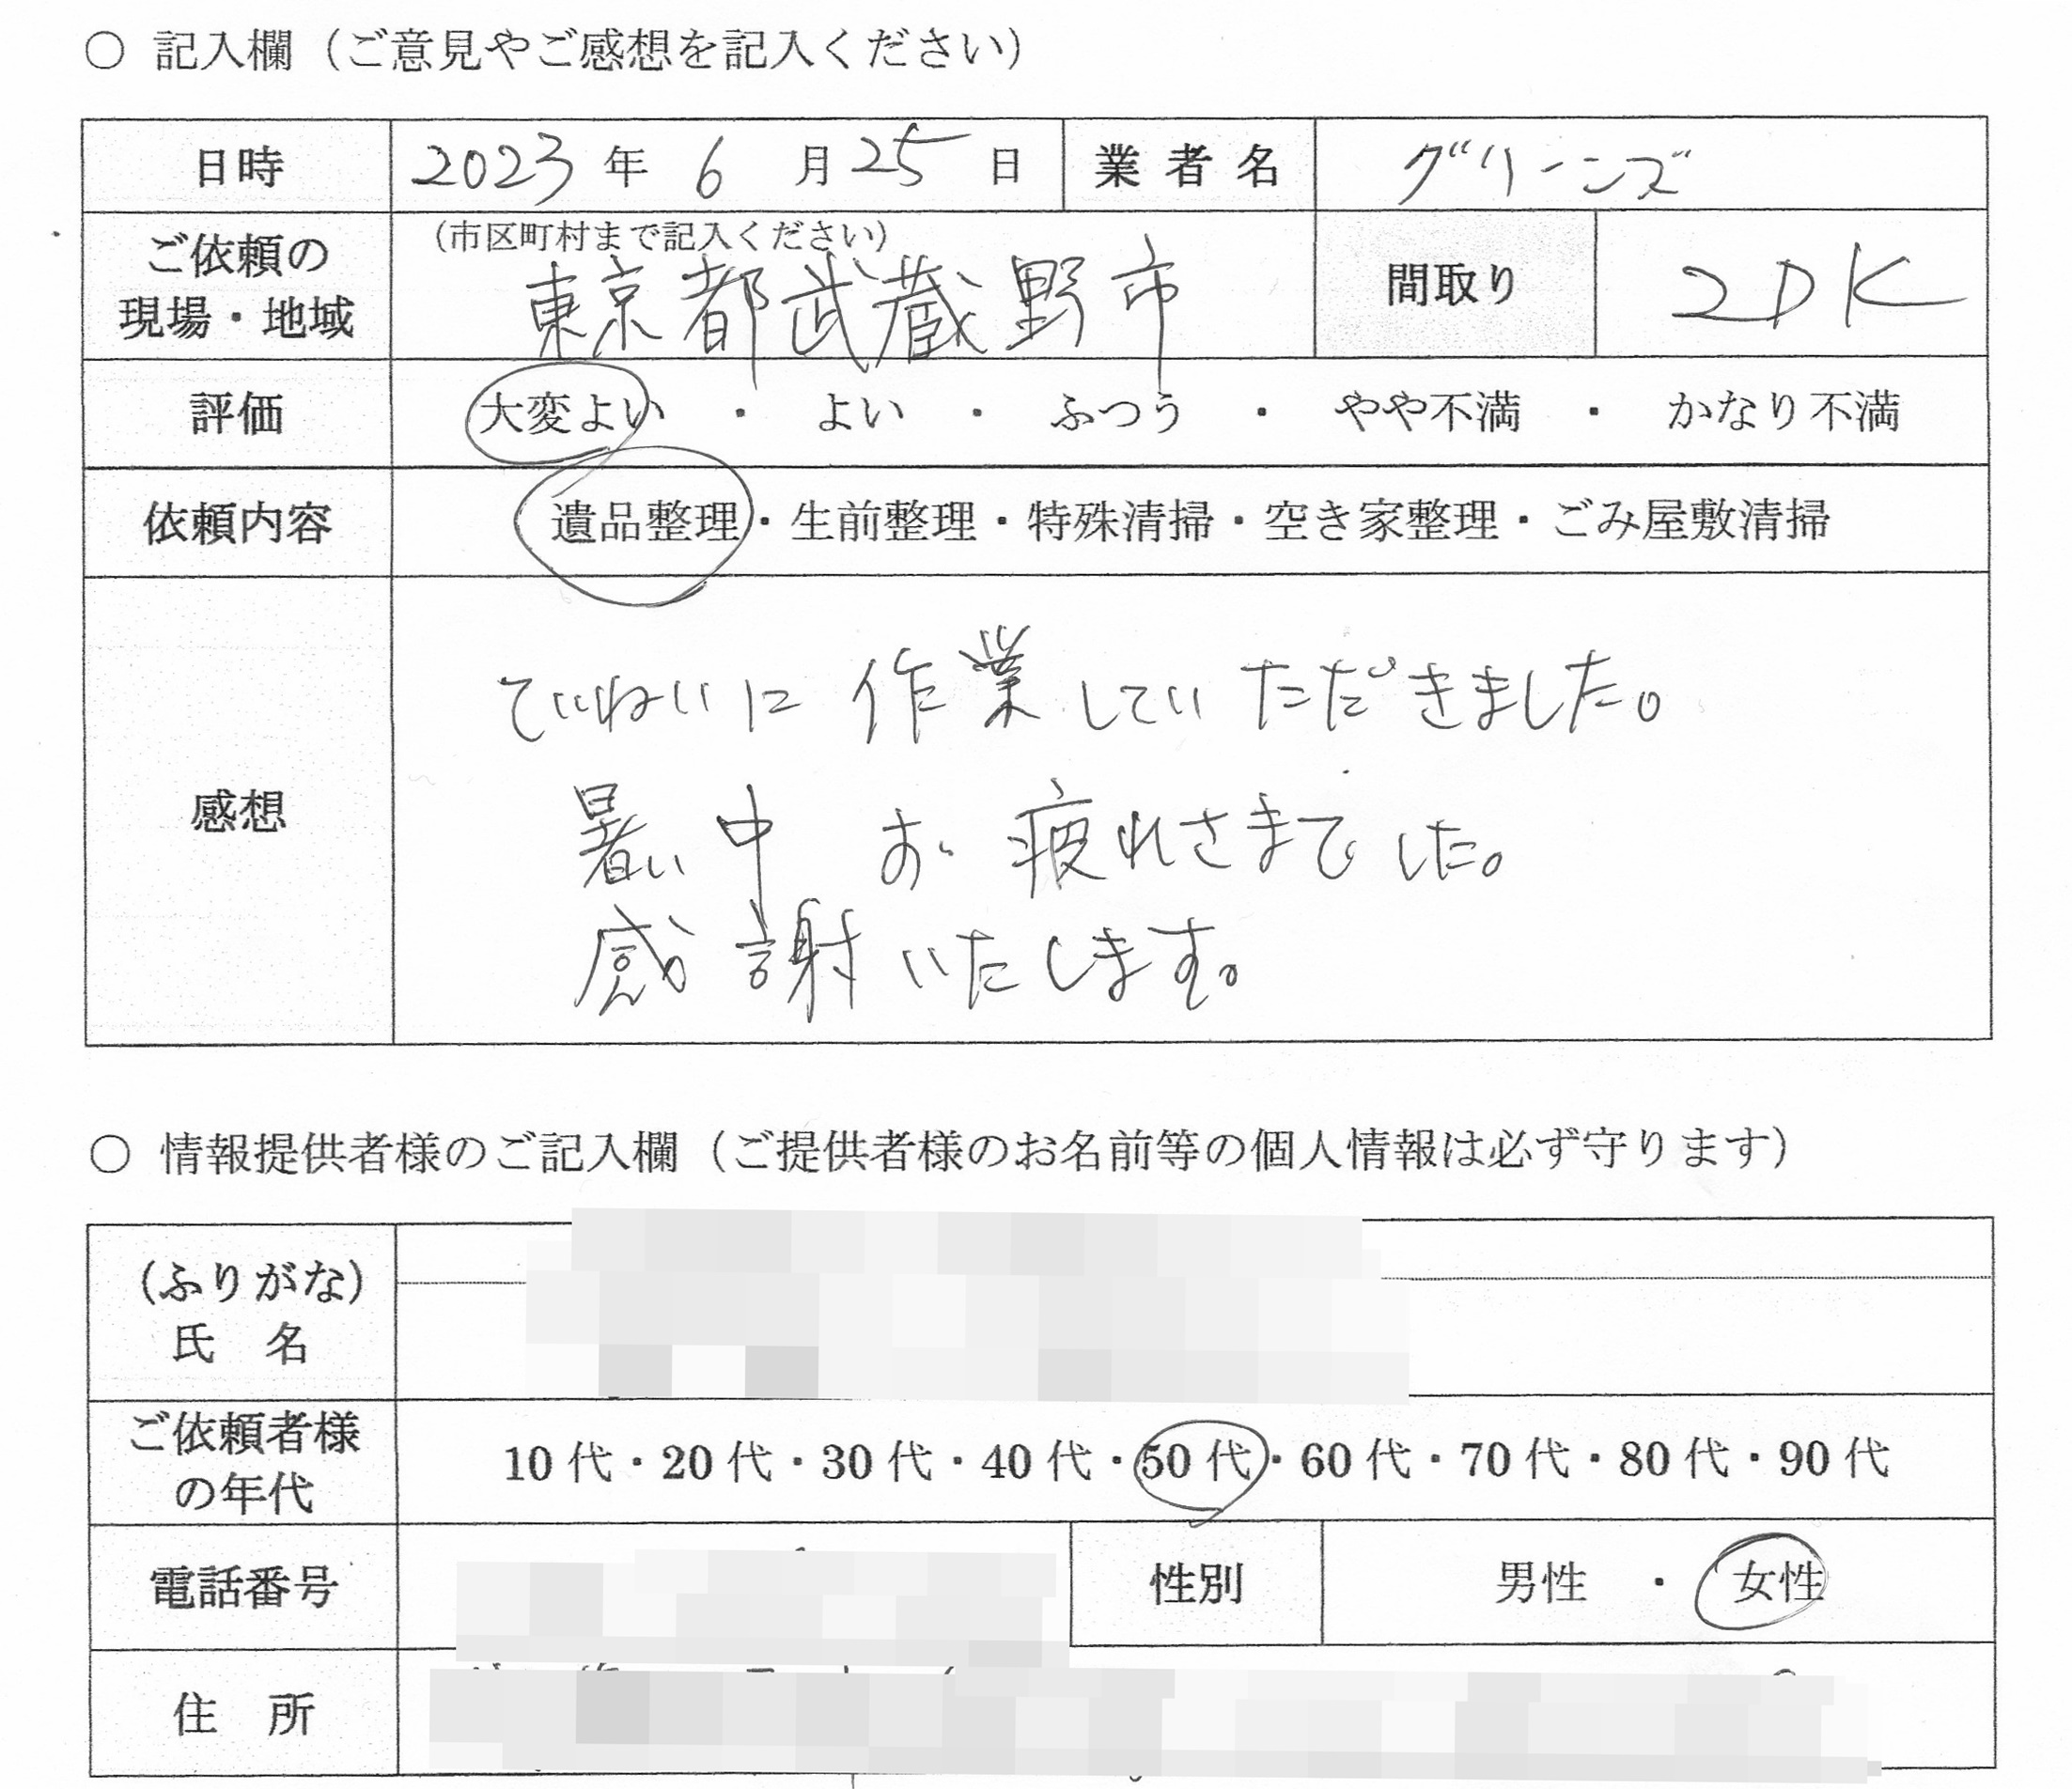 ○ 記入欄（ご意見やご感想を記入ください）
日時 2023 年 6 月 25 日 業者名 グリーンズ
ご依頼の
現場・地域
（市区町村まで記入ください）
東京都武蔵野市
間取り 2DK
評価 大変よい ・ よい ・ ふつう ・ やや不満 ・ かなり不満
依頼内容 遺品整理・生前整理・特殊清掃・空き家整理・ごみ屋敷清掃
感想
ていねいに作業していただきました。
暑い中 お疲れさまでした。
感謝いたします。
○ 情報提供者様のご記入欄（ご提供者様のお名前等の個人情報は必ず守ります）
（ふりがな）
氏 名
ご依頼者様
の年代
10代・20代・30代・40代・50代・60代・70代・80代・90代
電話番号
性別 男性 ・ 女性
住 所